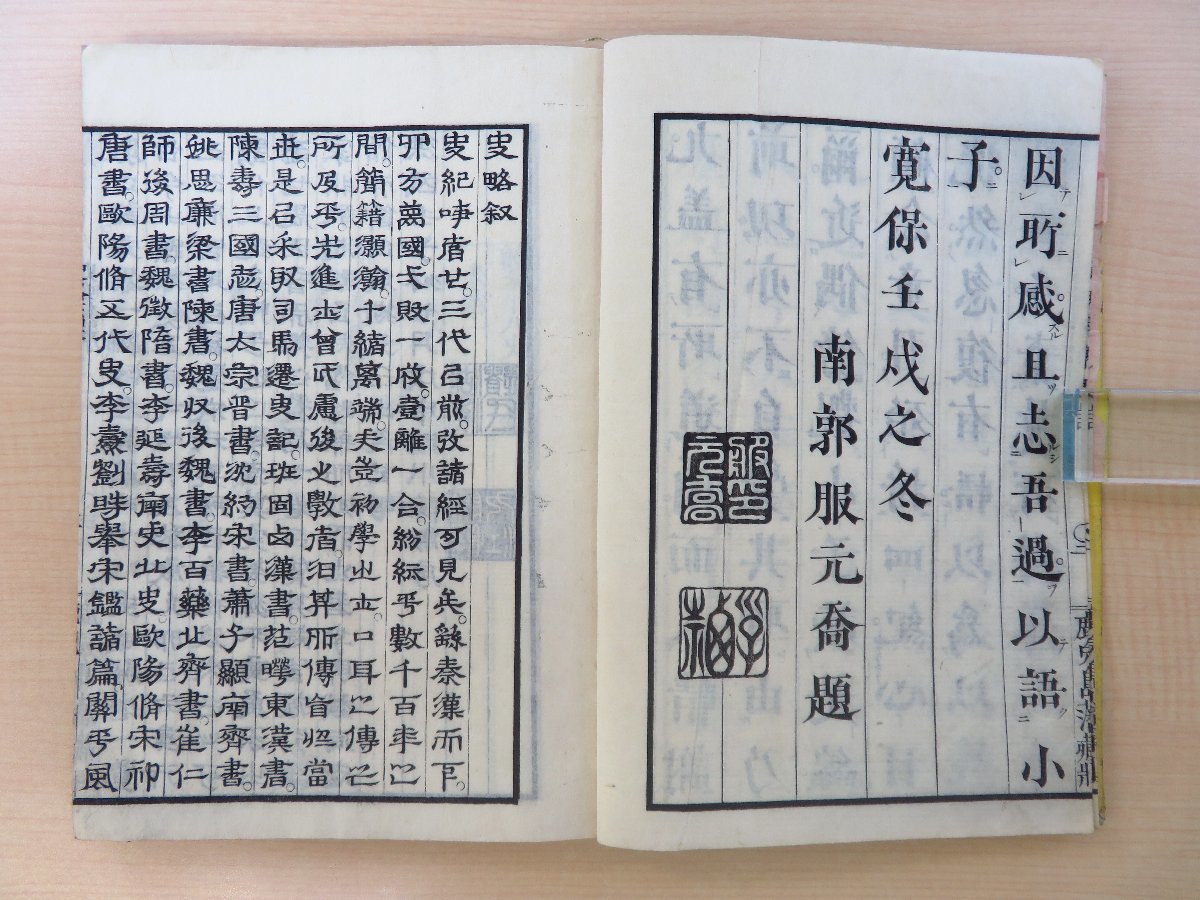 因所感且志吾過以語小
子
寛保壬戌之冬
南郭服元喬題
服印元喬
子遷
叓略叙
叓紀 三代㠯前。攷諸經可見矣。繇秦漢而下。
方萬國。弌敗一成。壹離一合。紛紜乎數千百年之
間。簡籍灝瀚。千緒萬端。夫豈初學之士。口耳之傳之
所及乎。先進士曾氏慮後之斅者汩其所傳 當
世。是㠯采取司馬遷叓記。班固西漢書。范曅東漢書
陳壽三國志。唐太宗晉書。沈約宋書。蕭子顯南齊書。
姚思廉梁書陳書。魏收後魏書。李百藥北齊書。崔仁
師後周書。魏徵隋書。李延壽南史北叓。歐陽脩宋祁
唐書。歐陽脩五代叓。李燾劉時舉宋鑑。諸篇。關乎風